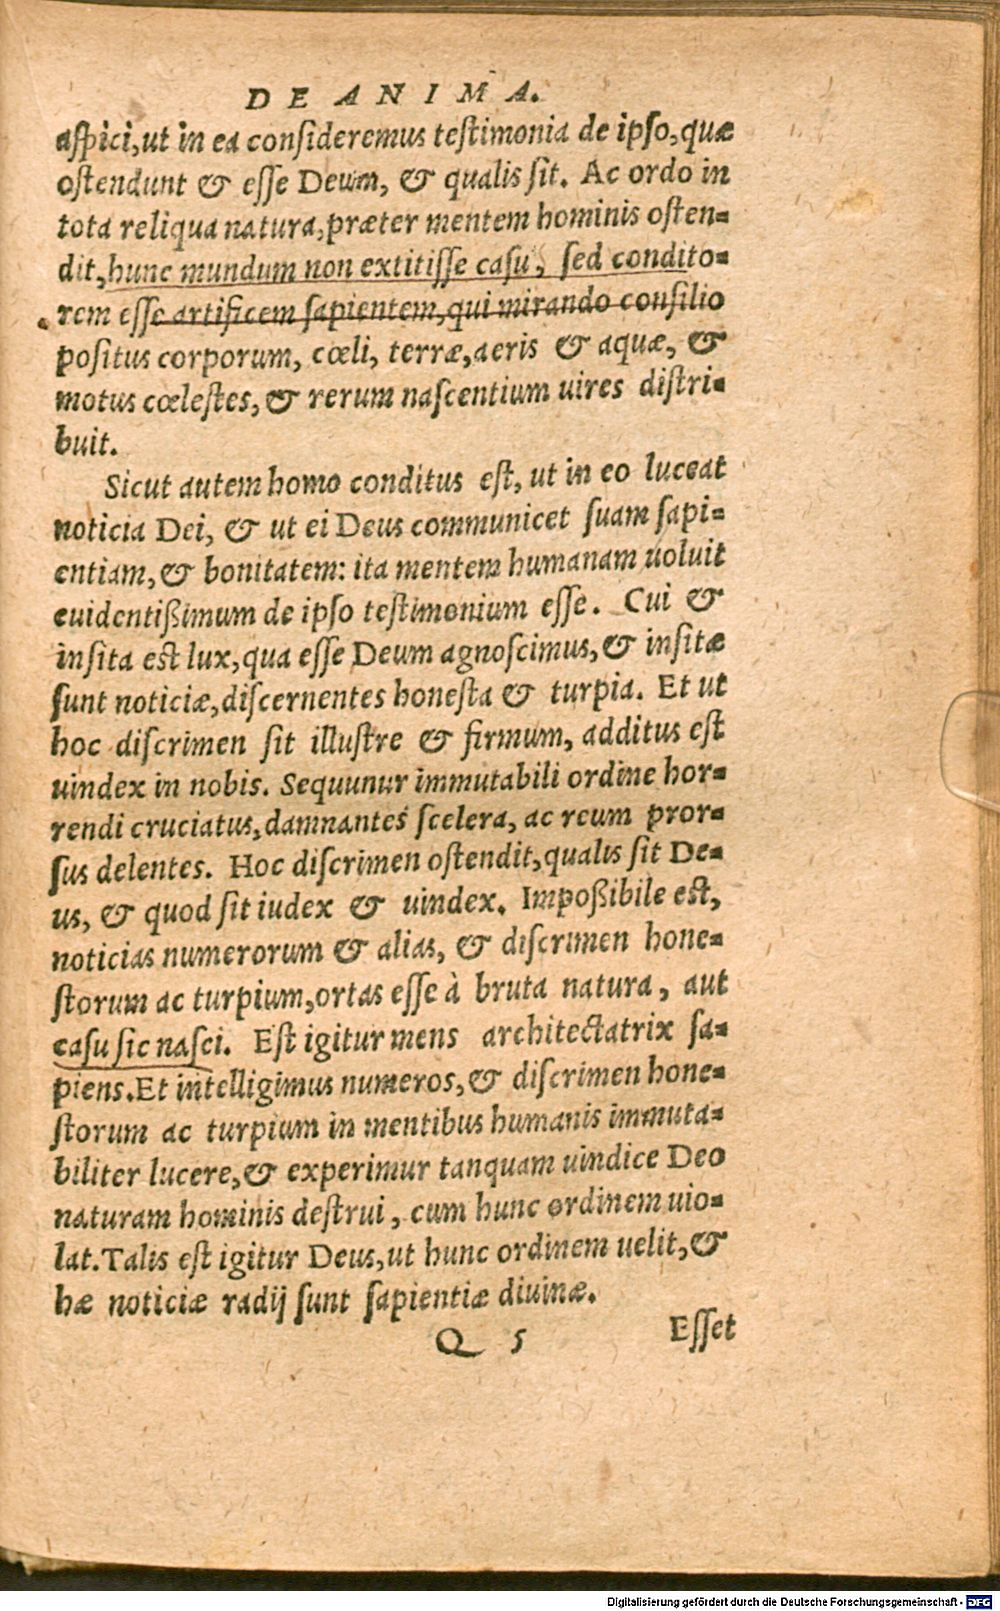 DE ANIMA.
aspici, ut in ea consideremus testimonia de ipso, quæ
ostendunt & esse Deum, & qualis sit. Ac ordo in
tota reliqua natura, præter mentem hominis osten-
dit, hunc mundum non extitisse casu, sed condito-
rem esse artificem sapientem, qui mirando consilio
positus corporum, cœli, terræ, aeris & aquæ, &
motus cœlestes, & rerum nascentium uires distri-
buit.
Sicut autem homo conditus est, ut in eo luceat
noticia Dei, & ut ei Deus communicet suam sapi-
entiam, & bonitatem: ita mentem humanam uoluit
euidentißimum de ipso testimonium esse. Cui &
insita est lux, qua esse Deum agnoscimus, & insitæ
sunt noticiæ, discernentes honesta & turpia. Et ut
hoc discrimen sit illustre & firmum, additus est
uindex in nobis. Sequunur immutabili ordine hor-
rendi cruciatus, damnantes scelera, ac reum pror-
sus delentes. Hoc discrimen ostendit, qualis sit De-
us, & quod sit iudex & uindex. Impoßibile est,
noticias numerorum & alias, & discrimen hone-
storum ac turpium, ortas esse à bruta natura, aut
casu sic nasci. Est igitur mens architectatrix sa-
piens. Et intelligimus numeros, & discrimen hone-
storum ac turpium in mentibus humanis immuta-
biliter lucere, & experimur tanquam uindice Deo
naturam hominis destrui, cum hunc ordinem uio-
lat. Talis est igitur Deus, ut hunc ordinem uelit, &
hæ noticiæ radij sunt sapientiæ diuinæ.
Q 5 Esset
Digitalisierung gefördert durch die Deutsche Forschungsgemeinschaft - DFG